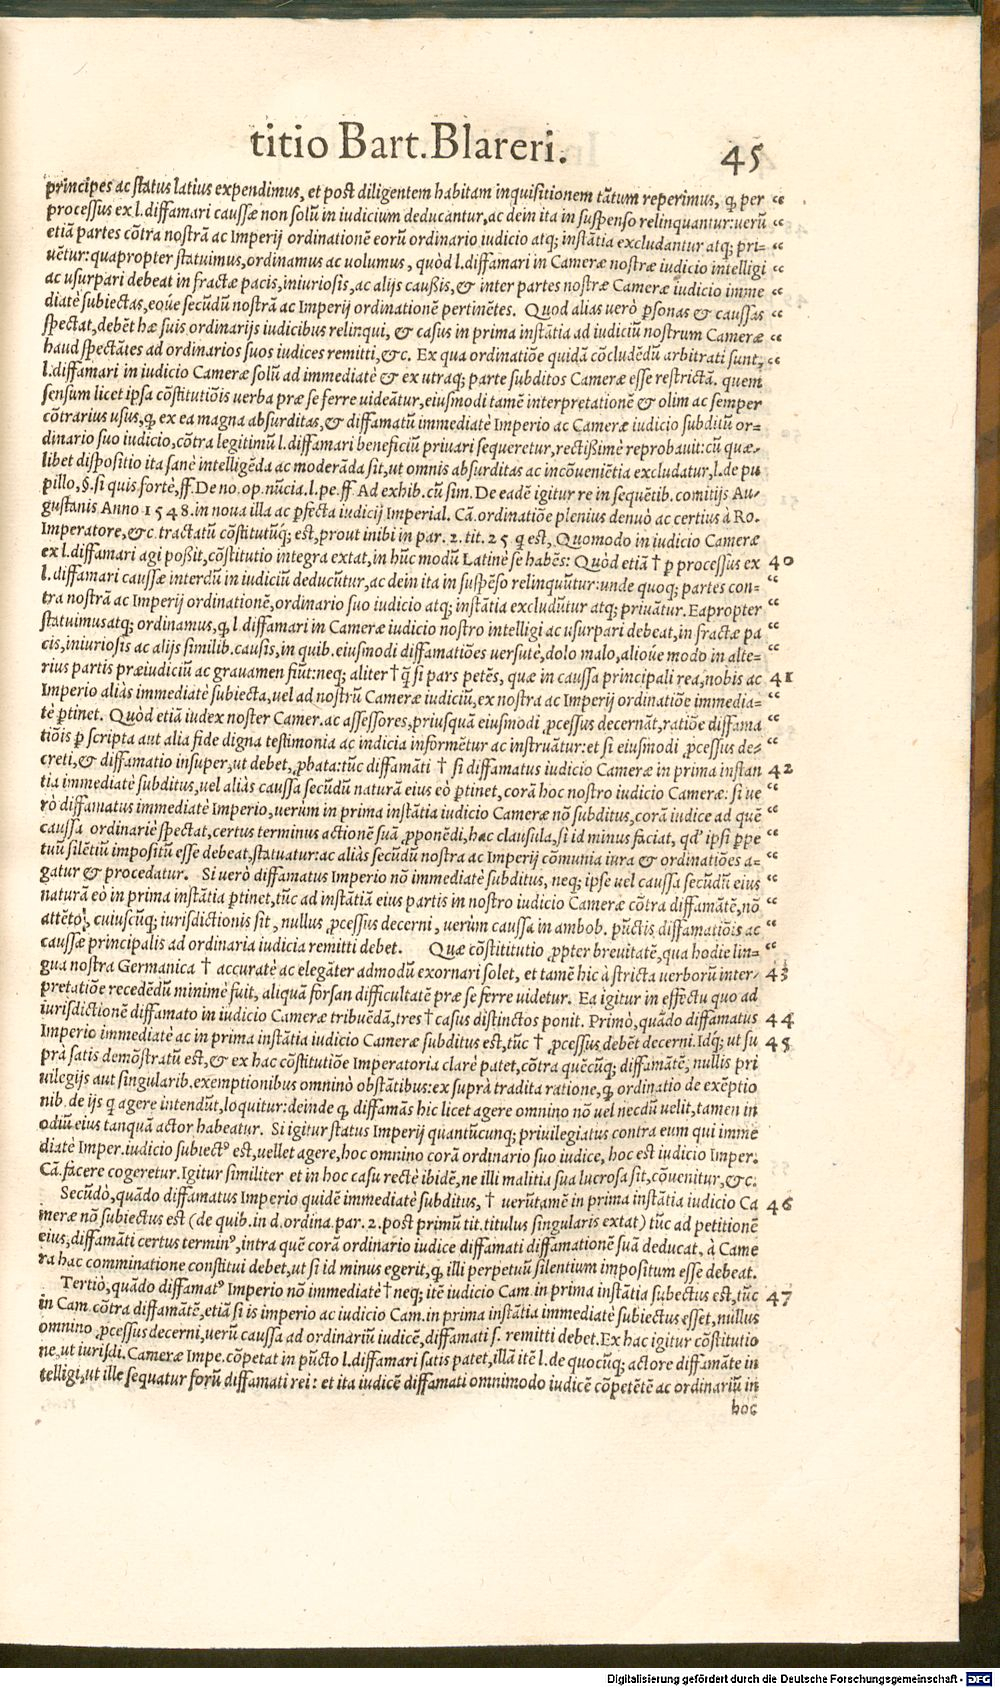 titio Bart. Blareri. 45
principes ac status latius expendimus, et post diligentem habitam inquisitionem tātum reperimus, q̨ per “
processus ex l. diffamari caussæ non solū in iudicium deducantur, ac dein ita in suspenso relinquantur: verū “
etiā partes cōtra nostrā ac Imperij ordinationē eorū ordinario iudicio atq; instātia excludantur atq; pri- “
uētur: quapropter statuimus, ordinamus ac volumus, quòd l. diffamari in Cameræ nostræ iudicio intelligi “
ac vsurpari debeat in fractæ pacis, iniuriosis, ac alijs caußis, & inter partes nostræ Cameræ iudicio imme “
diatè subiectas, eoúe secūdū nostrā ac Imperij ordinationē pertinētes. Quod alias verò p̱sonas & caussas “
spectat, debēt hæ suis ordinarijs iudicibus relinqui, & casus in prima instātia ad iudiciū nostrum Cameræ “
haud spectātes ad ordinarios suos iudices remitti, &c. Ex qua ordinatiōe quidā cōcludēdū arbitrati sunt, “
l. diffamari in iudicio Cameræ solū ad immediatè & ex vtraq; parte subditos Cameræ esse restrictā. quem
sensum licet ipsa cōstitutiōis verba præ se ferre videātur, eiusmodi tamē interpretationē & olim ac semper
cōtrarius vsus, q̨ ex ea magna absurditas, & diffamatū immediatè Imperio ac Cameræ iudicio subditū or-
dinario suo iudicio, cōtra legitimū l. diffamari beneficiū priuari sequeretur, rectißimè reprobauit: cū quæ-
libet dispositio ita sanè intelligēda ac moderāda sit, vt omnis absurditas ac incōueniētia excludatur, l. de pu
pillo, §. si quis fortè, ff. De no. op. nūcia. l. pe. ff. Ad exhib. cū sim. De eadē igitur re in sequētib. comitijs Au-
gustanis Anno 1548. in noua illa ac p̱fecta iudicij Imperial. Cā. ordinatiōe plenius denuò ac certius à Ro.
Imperatore, &c. tractatū cōstitutūq́; est, prout inibi in par. 2. tit. 25 q̨ est, Quomodo in iudicio Cameræ
ex l. diffamari agi poßit, cōstitutio integra extat, in hūc modū Latinè se habēs: Quòd etiā † p̱ processus ex 40
l. diffamari caussæ interdū in iudiciū deducūtur, ac dein ita in suspēso relinquūtur: vnde quoq; partes con- “
tra nostrā ac Imperij ordinationē, ordinario suo iudicio atq; instātia excludūtur atq; priuātur. Eapropter “
statuimus atq; ordinamus, q̨ l. diffamari in Cameræ iudicio nostro intelligi ac vsurpari debeat, in fractæ pa “
cis, iniuriosis ac alijs similib. causis, in quib. eiusmodi diffamatiōes versutè, dolo malo, alioúe modo in alte- “
rius partis præiudiciū ac grauamen fiūt: neq; aliter † q̄ si pars petēs, quæ in caussa principali rea, nobis ac 41
Imperio aliàs immediatè subiecta, vel ad nostrū Cameræ iudiciū, ex nostra ac Imperij ordinatiōe immedia- “
tè p̱tinet. Quòd etiā iudex noster Camer. ac assessores, priusquā eiusmodi ꝓcessus decernāt, ratiōe diffama “
tiōis p̱ scripta aut alia fide digna testimonia ac indicia informētur ac instruātur: et si eiusmodi ꝓcessus de- “
creti, & diffamatio insuper, vt debet, ꝓbata: tūc diffamāti † si diffamatus iudicio Cameræ in prima instan 42
tia immediatè subditus, vel aliàs caussa secūdū naturā eius eò p̱tinet, corā hoc nostro iudicio Cameræ: si ve “
rò diffamatus immediatè Imperio, verùm in prima instātia iudicio Cameræ nō subditus, corā iudice ad quē “
caussa ordinariè spectat, certus terminus actionē suā ꝓponēdi, hac clausula, si id minus faciat, qd' ipsi p̱pe “
tuū silētiū impositū esse debeat, statuatur: ac aliàs secūdū nostra ac Imperij cōmunia iura & ordinatiōes a- “
gatur & procedatur. Si verò diffamatus Imperio nō immediatè subditus, neq; ipse vel caussa secūdū eius “
naturā eò in prima instātia p̱tinet, tūc ad instātiā eius partis in nostro iudicio Cameræ cōtra diffamātē, nō “
attēto, cuiuscūq; iurisdictionis sit, nullus ꝓcessus decerni, verùm caussa in ambob. pūctis diffamatiōis ac “
caussæ principalis ad ordinaria iudicia remitti debet. Quæ cōstititutio ꝓpter breuitatē, qua hodie lin- “
gua nostra Germanica † accuratè ac elegāter admodū exornari solet, et tamē hic à stricta verborū inter- 43
pretatiōe recedēdū minimè fuit, aliquā forsan difficultatē præ se ferre videtur. Ea igitur in effectu quo ad
iurisdictionē diffamato in iudicio Cameræ tribuēdā, tres † casus distinctos ponit. Primò, quādo diffamatus 44
Imperio immediatè ac in prima instātia iudicio Cameræ subditus est, tūc † ꝓcessus debēt decerni. Idq́; vt su 45
prà satis demōstratū est, & ex hac cōstitutiōe Imperatoria clarè patet, cōtra quēcūq; diffamātē, nullis pri
uilegijs aut singularib. exemptionibus omninò obstātibus: ex suprà tradita ratione, q̨ ordinatio de exēptio
nib. de ijs q̨ agere intendūt, loquitur: deinde q̨ diffamās hic licet agere omnino nō vel necdū velit, tamen in
odiū eius tanquā actor habeatur. Si igitur status Imperij quantūcunq; priuilegiatus contra eum qui imme
diatè Imper. iudicio subiectꝰ est, vellet agere, hoc omnino corā ordinario suo iudice, hoc est iudicio Imper.
Cā. facere cogeretur. Igitur similiter et in hoc casu rectè ibidē, ne illi malitia sua lucrosa sit, cōuenitur, &c.
Secūdò, quādo diffamatus Imperio quidē immediatè subditus, † verūtamē in prima instātia iudicio Ca 46
meræ nō subiectus est (de quib. in d. ordina. par. 2. post primū tit. titulus singularis extat) tūc ad petitionē
eius, diffamāti certus terminꝰ, intra quē corā ordinario iudice diffamati diffamationē suā deducat, à Came
ra hac comminatione constitui debet, vt si id minus egerit, q̨ illi perpetuū silentium impositum esse debeat.
Tertiò, quādo diffamatꝰ Imperio nō immediatè † neq; itē iudicio Cam. in prima instātia subectus est, tūc 47
in Cam. cōtra diffamātē, etiā si is imperio ac iudicio Cam. in prima instātia immediatè subiectus esset, nullus
omnino ꝓcessus decerni, verū caussa ad ordinariū iudicē, diffamati s. remitti debet. Ex hac igitur cōstitutio
ne, vt iurisdi. Cameræ Impe. cōpetat in pūcto l. diffamari satis patet, illā itē l. de quocūq; actore diffamāte in
telligi, vt ille sequatur forū diffamati rei: et ita iudicē diffamati omnimodo iudicē cōpetētē ac ordinariū in
hoc
Digitalisierung gefördert durch die Deutsche Forschungsgemeinschaft - DFG